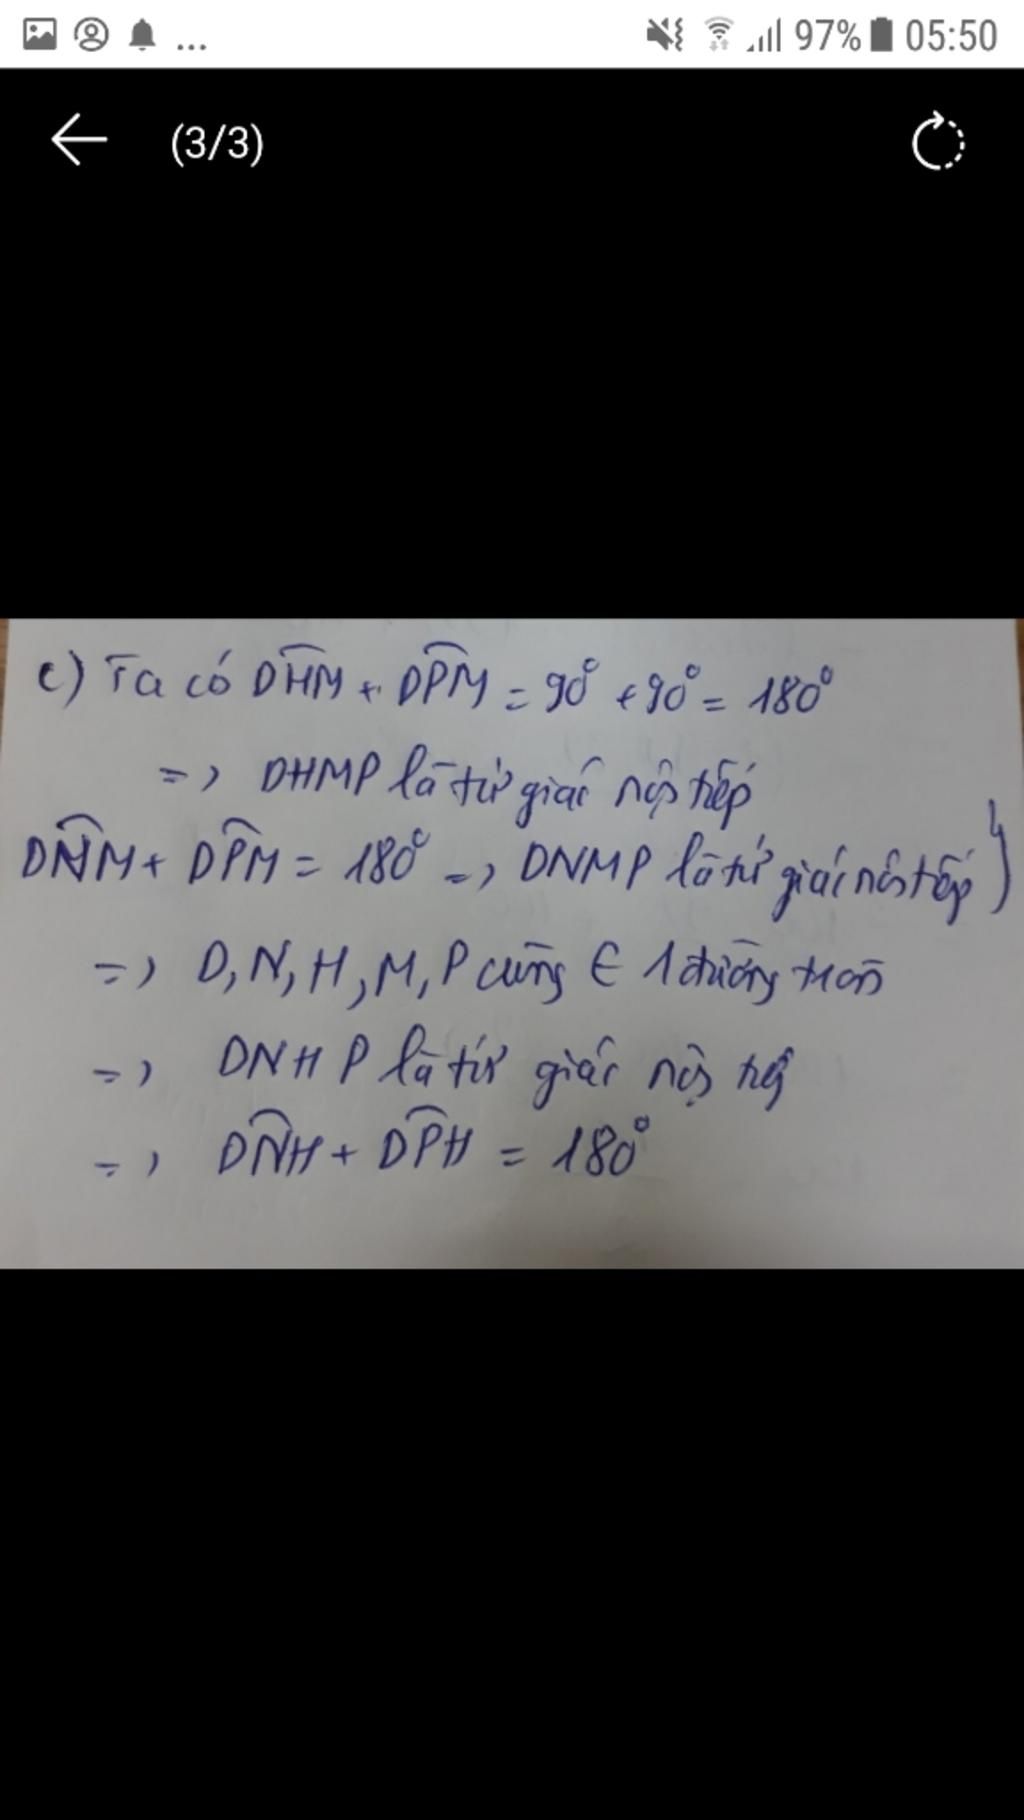 ... 97% 05:50
(3/3)
c) Ta có DHM + DPM = 90° + 90° = 180°
=> DHMP là tứ giác nội tiếp
DNM + DPM = 180° => DNMP là tứ giác nội tiếp }
=> D, N, H, M, P cùng ∈ 1 đường tròn
=> DNHP là tứ giác nội tiếp
=> DNH + DPH = 180°